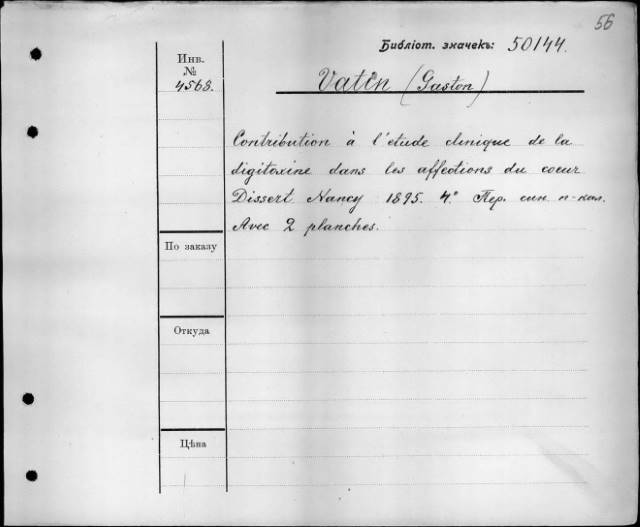 56
Библіот. значекъ: 50144.
Инв.
№
4568.
Vatin (Gaston)
Contribution à l'étude clinique de la
digitoxine dans les affections du coeur
Dissert. Nancy 1895. 4° Пер. син. п-кол.
Avec 2 planches.
По заказу
Откуда
Цѣна